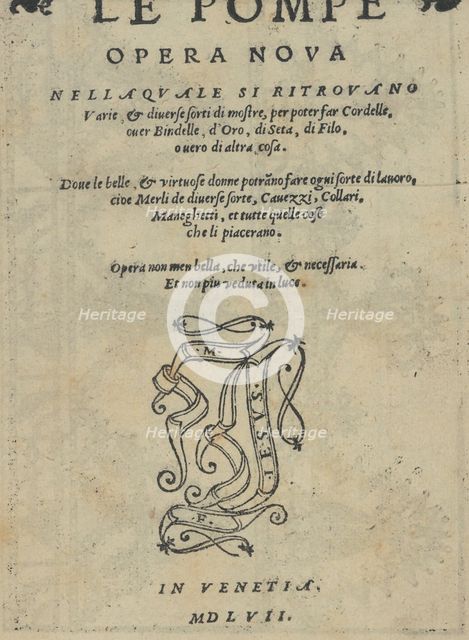 LE POMPE
OPERA NOVA
NELLA QVALE SI RITROVANO
Varie, & diverse sorti di mostre, per poter far Cordelle,
over Bindelle, d'Oro, di Seta, di Filo,
overo di altra cosa.
Dove le belle, & virtuose donne potrāno fare ogni sorte di lavoro,
cioe Merli de diverse sorte, Cavezzi, Collari,
Maneghetti, et tutte quelle cose
che li piacerano.
Opera non men bella, che utile, & necessaria.
Et non piu veduta in luce.
M.
IESVS.
F.
IN VENETIA.
MDLVII.
Heritage Heritage
Heritage Heritage
Heritage Heritage